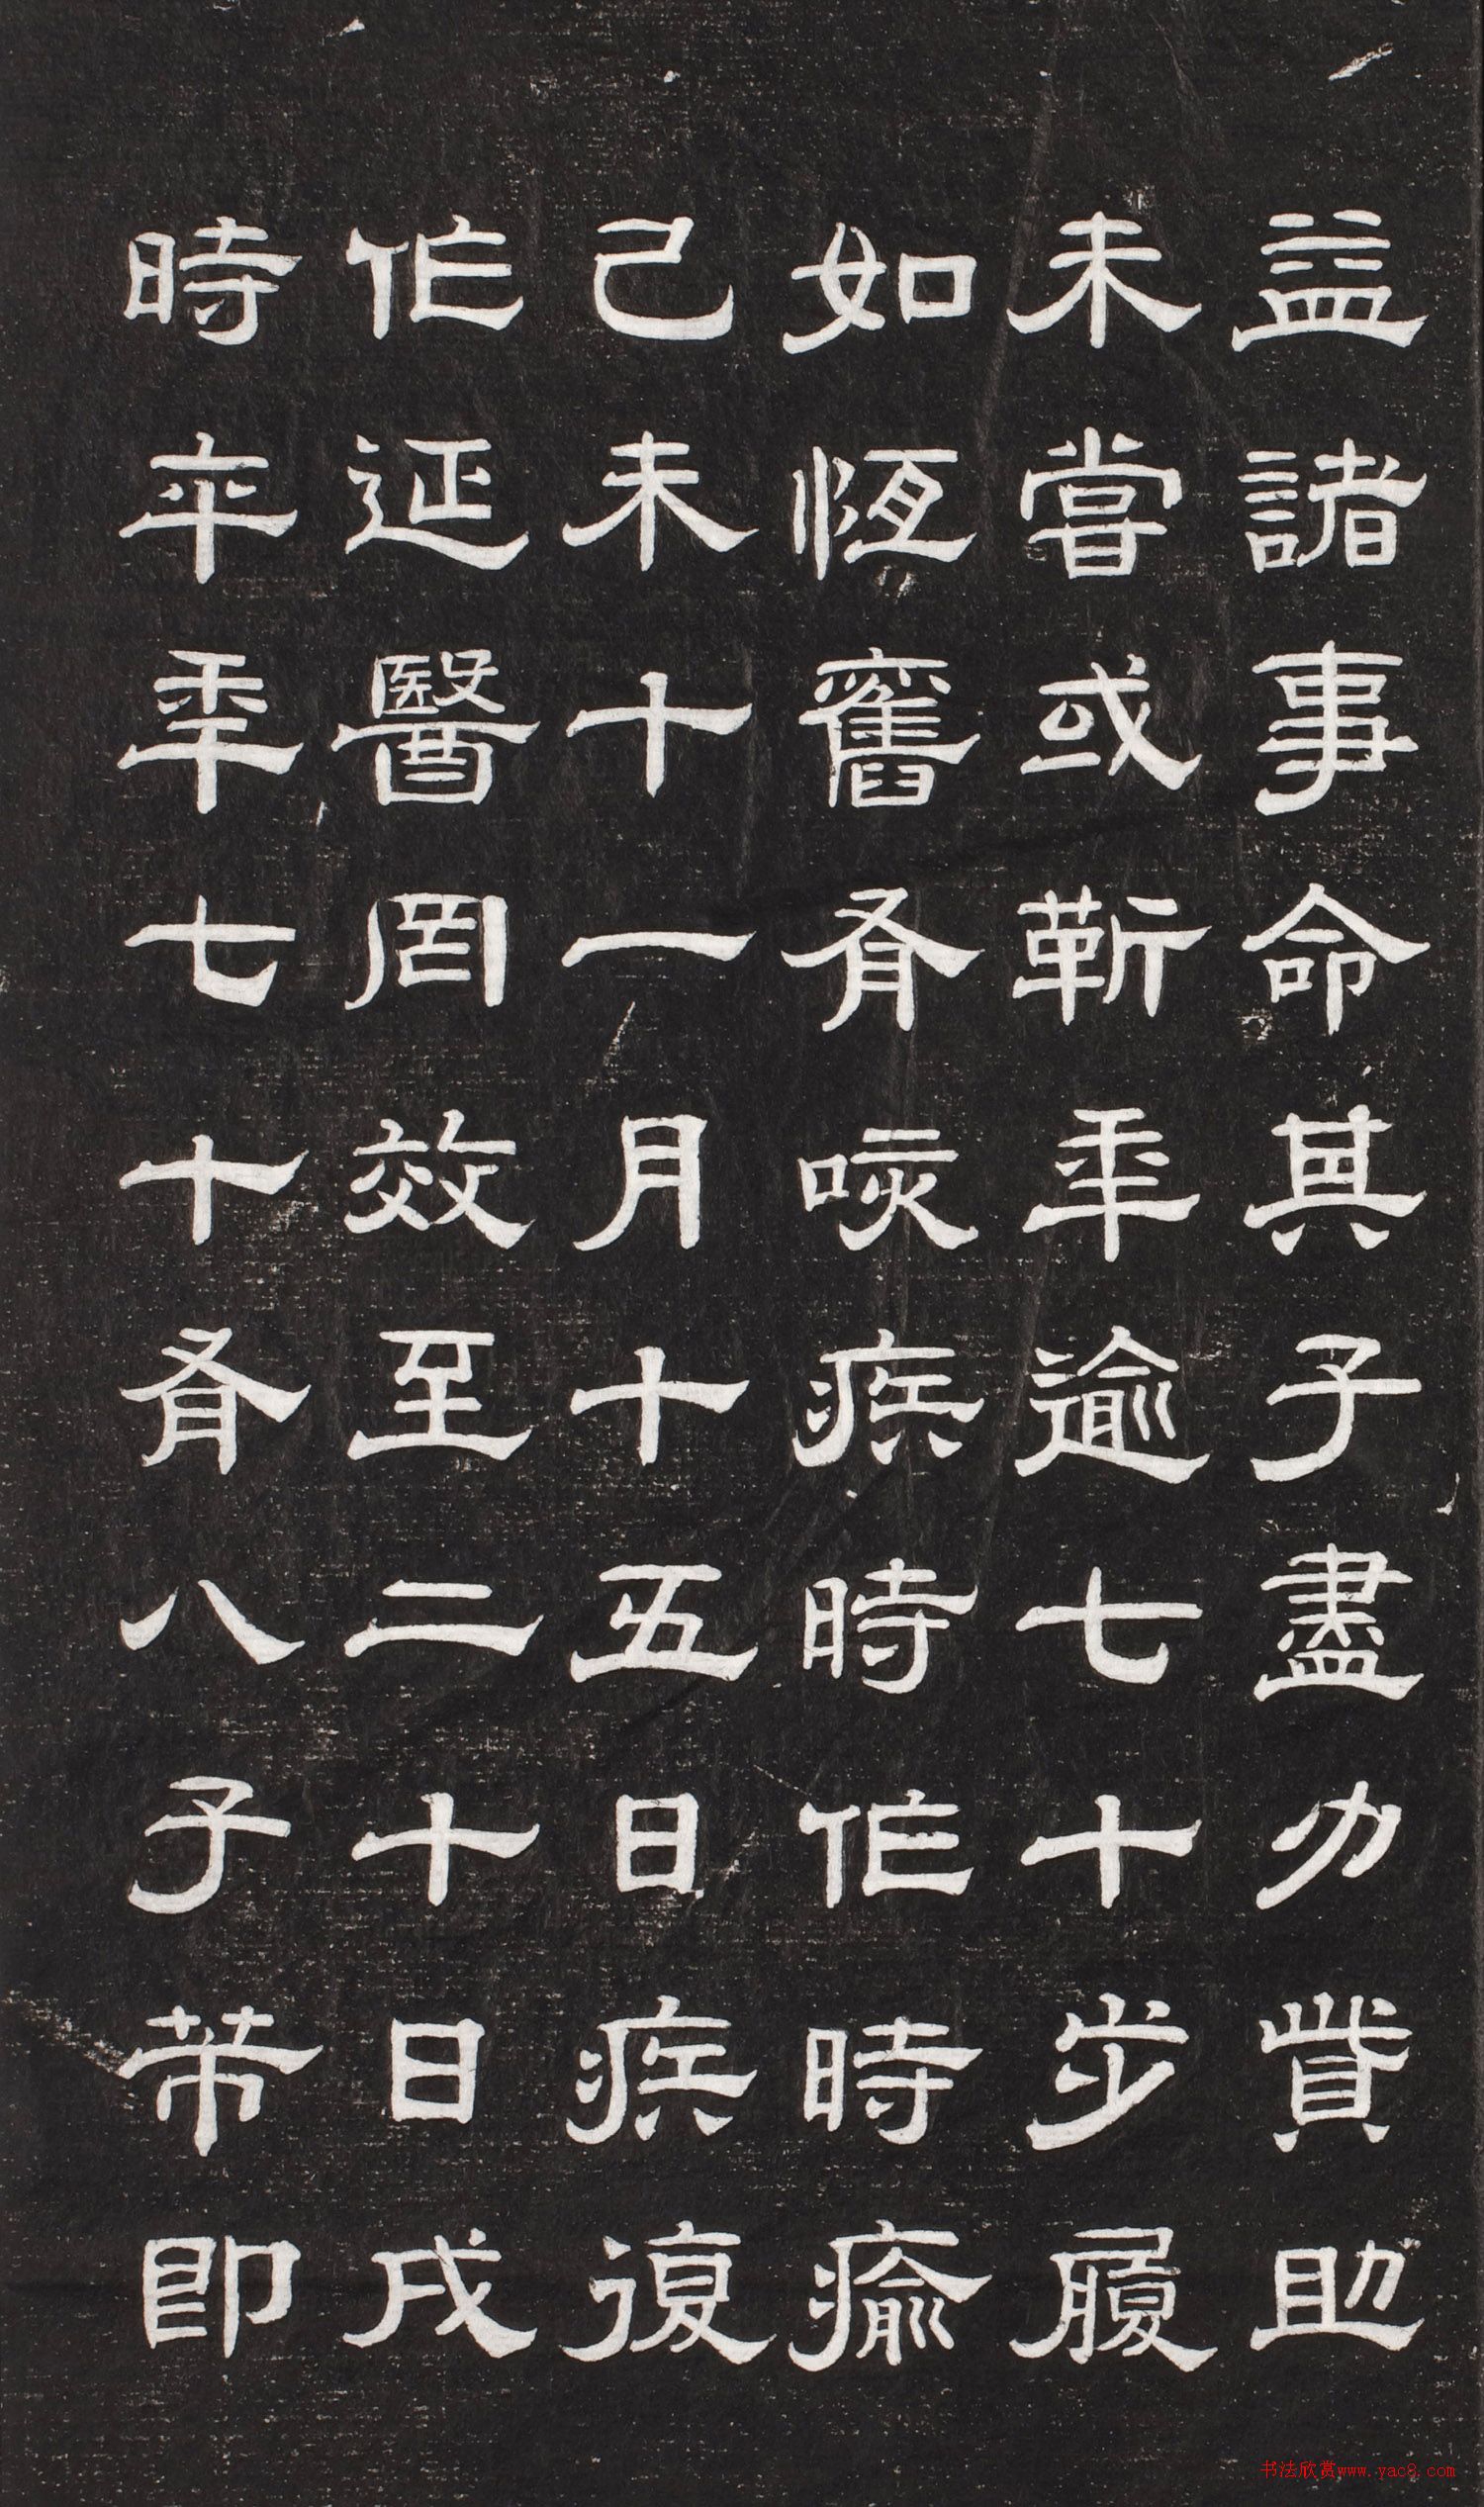 益諸事命其子盡力貲助
未嘗或靳年逾七十步履
如恆舊有咳疾時作時瘉
己未十一月十五日疾復
作延醫罔效至二十日戌
時卒年七十有八子芾即
书法欣赏www.yac8.com